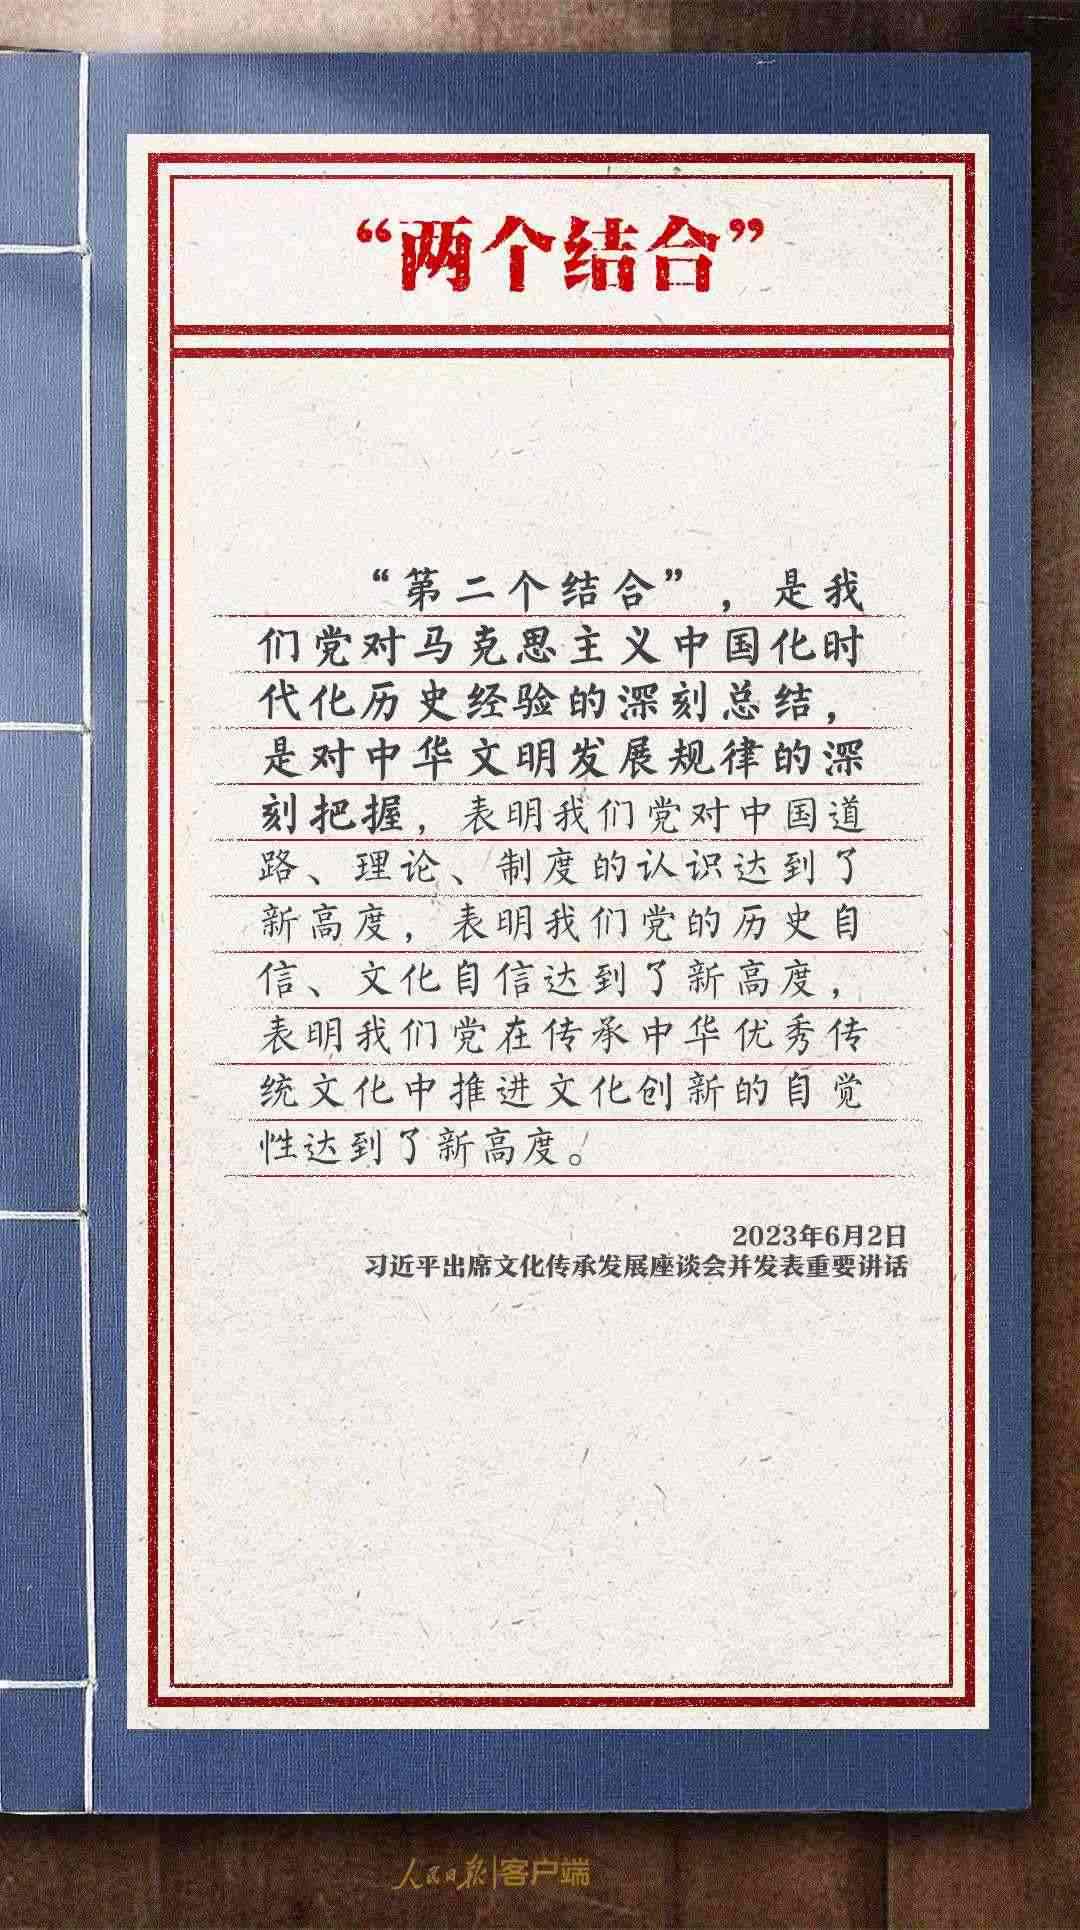 “两个结合”
“第二个结合”，是我
们党对马克思主义中国化时
代化历史经验的深刻总结，
是对中华文明发展规律的深
刻把握，表明我们党对中国道
路、理论、制度的认识达到了
新高度，表明我们党的历史自
信、文化自信达到了新高度，
表明我们党在传承中华优秀传
统文化中推进文化创新的自觉
性达到了新高度。
2023年6月2日
习近平出席文化传承发展座谈会并发表重要讲话
人民日报|客户端